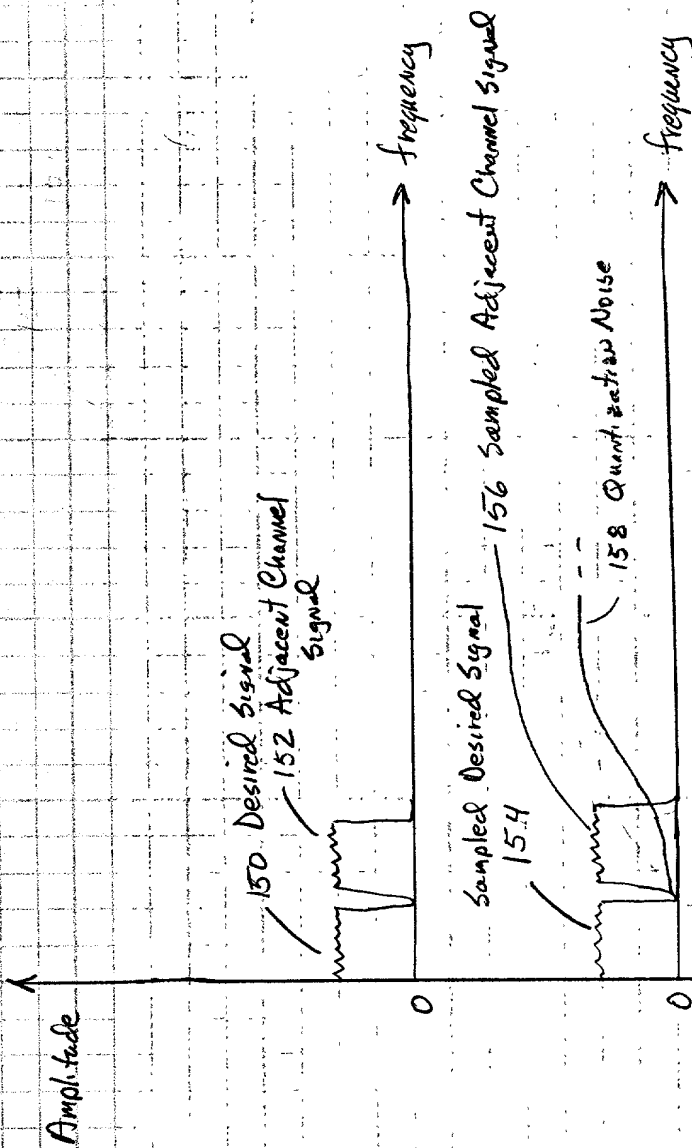 Amplitude
150 Desired Signal
152 Adjacent Channel
Signal
0
frequency
Sampled Desired Signal
154
156 Sampled Adjacent Channel Signal
158 Quantization Noise
0
frequency